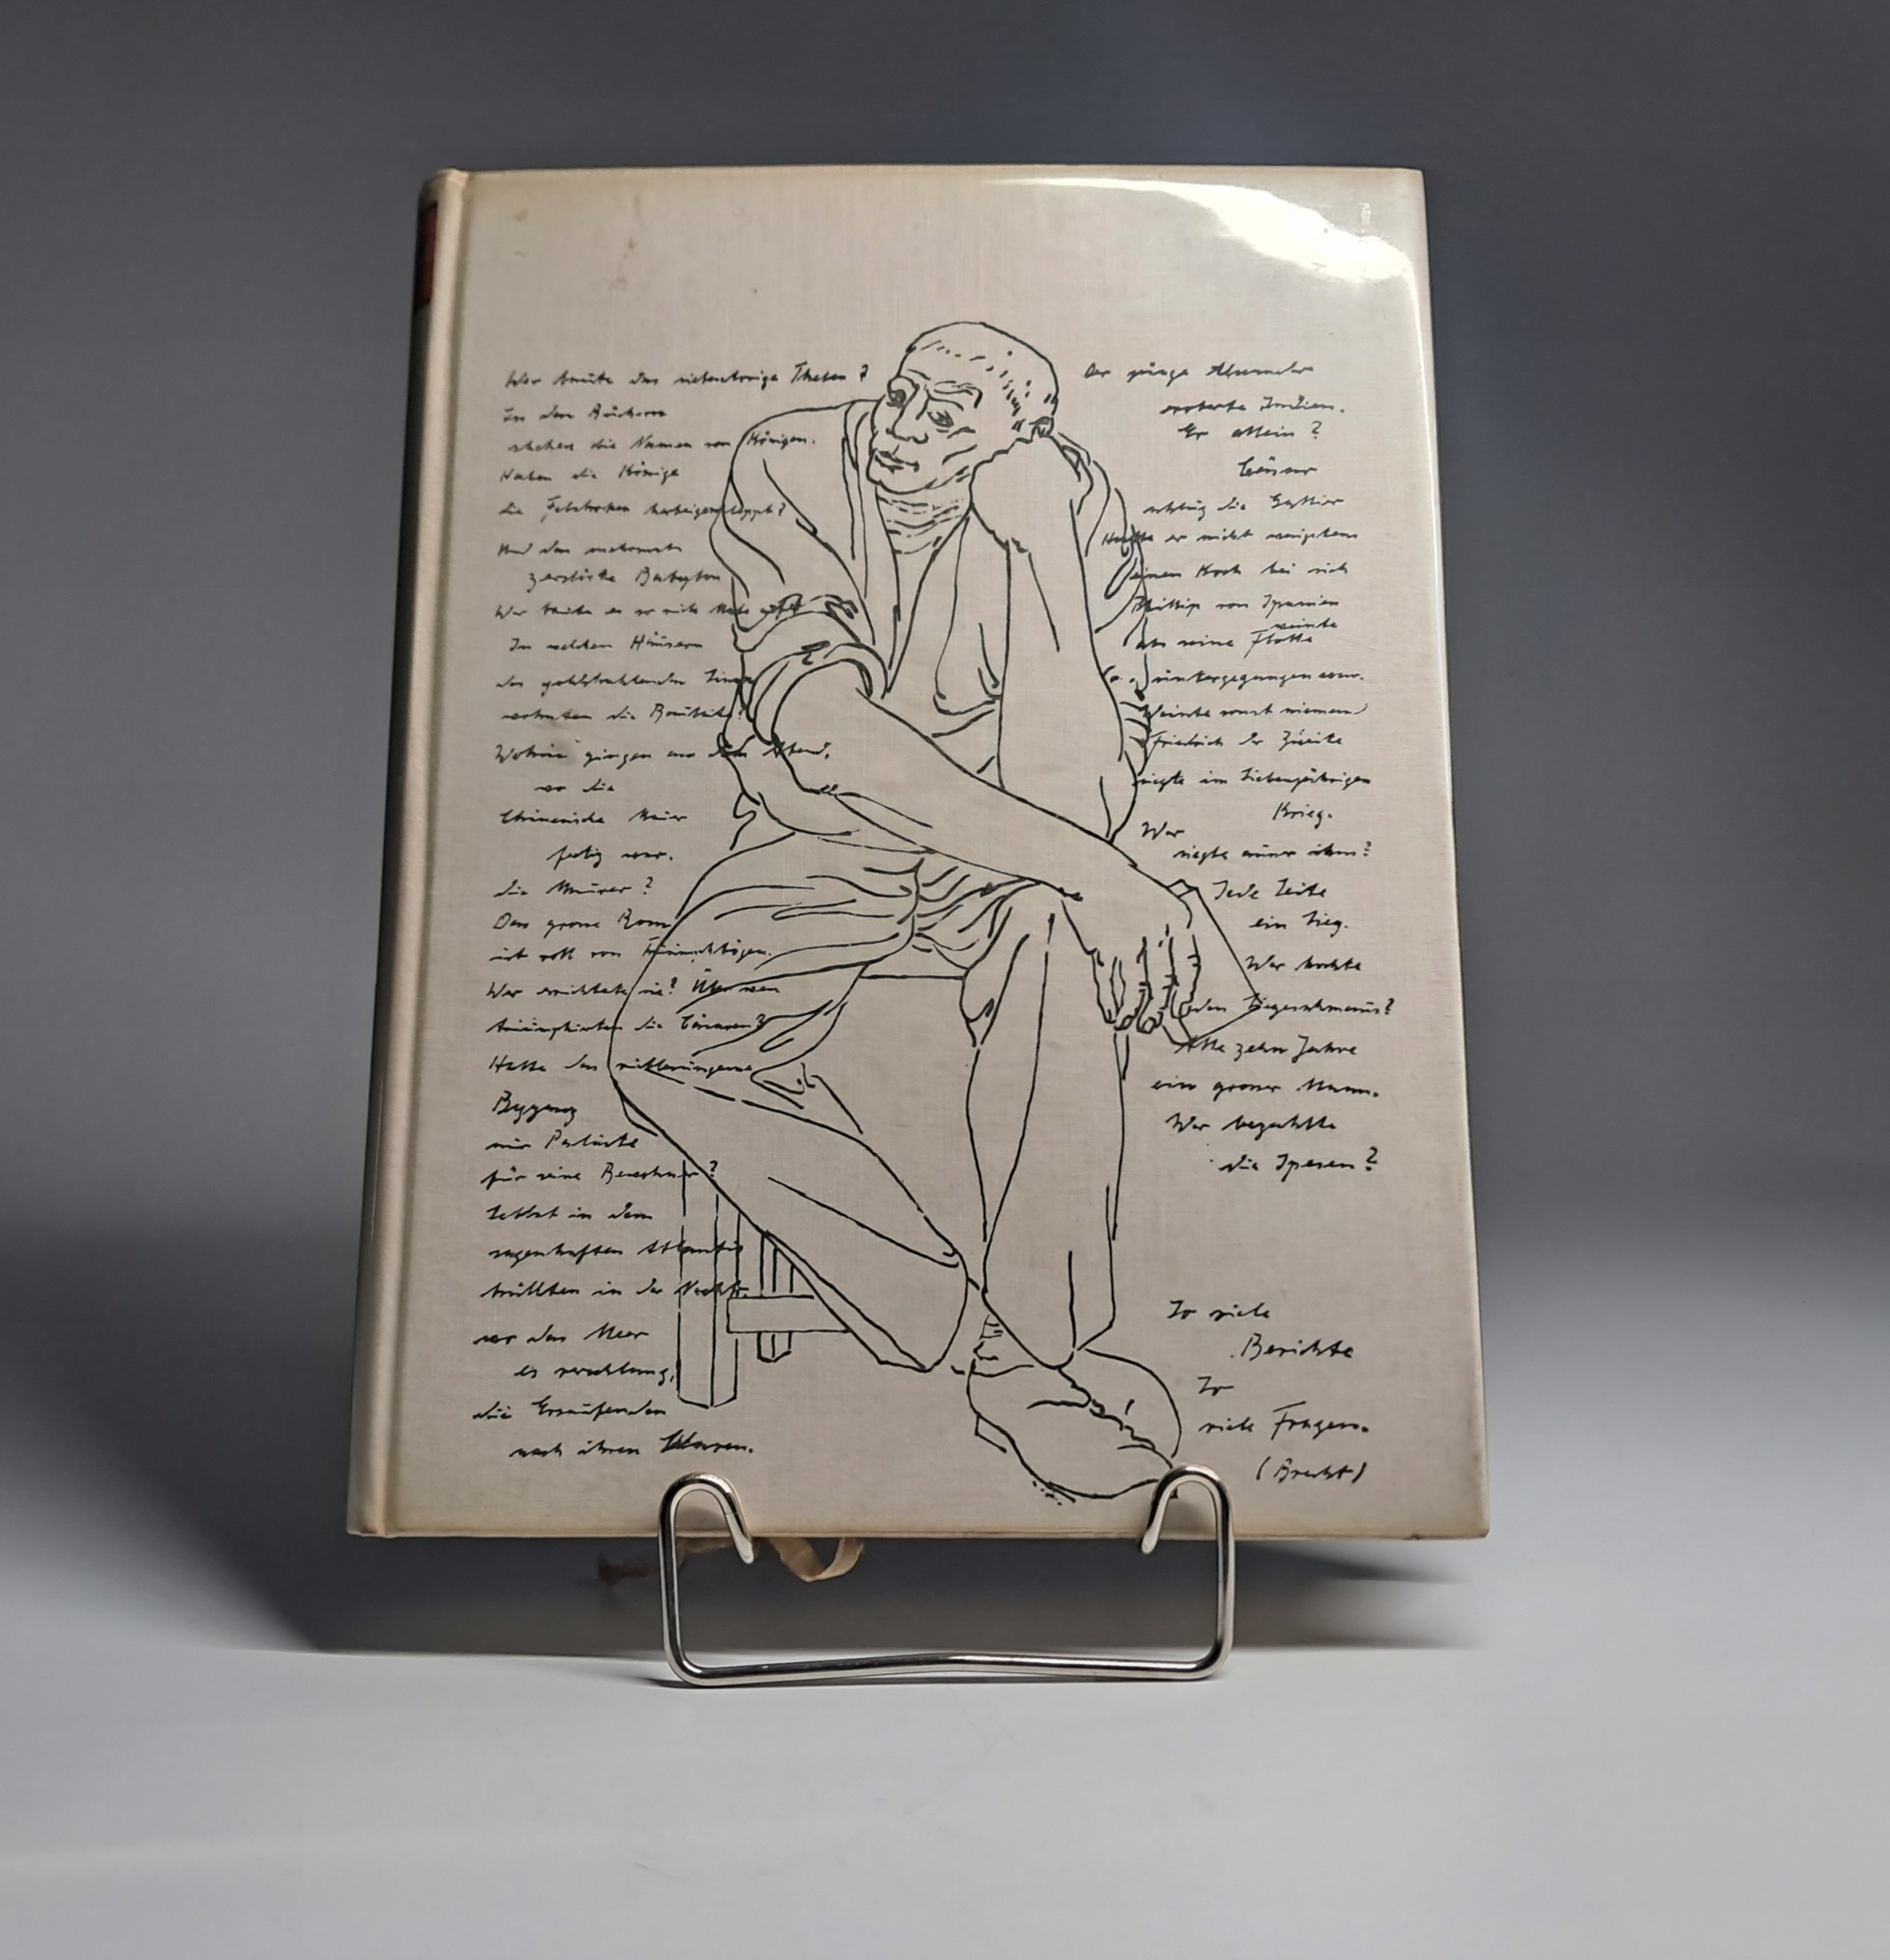 Wer baute das siebentorige Theben?
In den Büchern
stehen die Namen von Königen.
Haben die Könige
die Felsbrocken herbeigeschleppt?
Und das mehrmals
zerstörte Babylon
Wer baute es so viele Male auf?
In welchen Häusern
des goldstrahlenden Lima
wohnten die Bauleute?
Wohin gingen an dem Abend,
wo die
Chinesische Mauer
fertig war.
die Maurer?
Das grosse Rom
ist voll von Triumphbögen.
Wer errichtete sie? Über wen
triumphierten die Cäsaren?
Hatte das vielbesungene
Byzanz
nur Paläste
für seine Bewohner?
Selbst in dem
sagenhaften Atlantis
brüllten in der Nacht
wo das Meer
es verschlang,
die Ersaufenden
nach ihren Sklaven.
Der junge Alexander
eroberte Indien.
Er allein?
Cäsar
schlug die Gallier
Hatte er nicht wenigstens
einen Koch bei sich
Phillip von Spanien
weinte
als seine Flotte
untergegangen war.
Weinte sonst niemand
Friedrich der Zweite
siegte im Siebenjährigen
Krieg.
Wer
siegte ausser ihm?
Jede Seite
ein Sieg.
Wer kochte
den Siegesschmaus?
Alle zehn Jahre
ein grosser Mann.
Wer bezahlte
die Spesen?
So viele
Berichte
So
viele Fragen.
(Brecht)